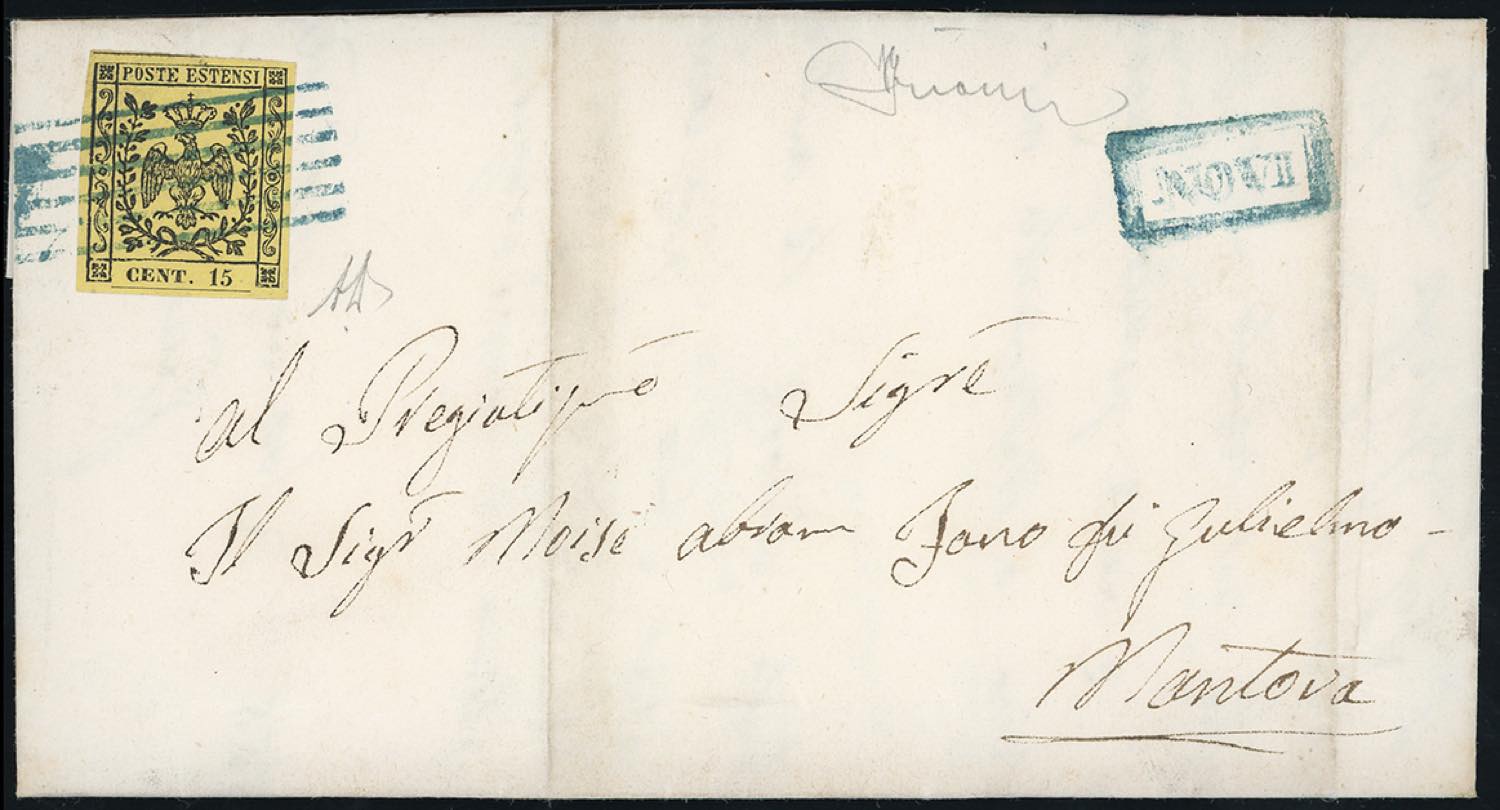 POSTE ESTENSI
CENT. 15
NOVI
al Pregiatiṃo Sigrẽ
Il Sigr Moise abram Jano di Gulielmo -
Mantova